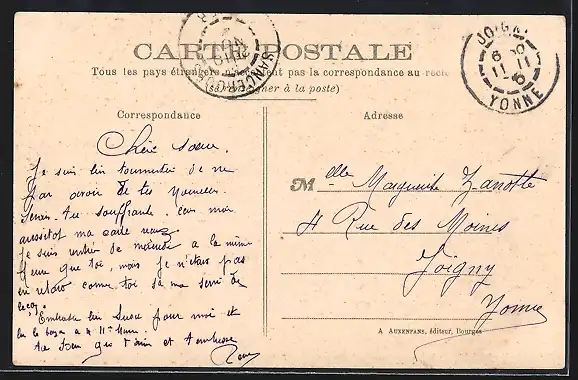 CARTE POSTALE
Tous les pays étrangers n'acceptent pas la correspondance au recto
(se renseigner à la poste)
SANCERGUES
JOIGNY
6
11 11
YONNE
Correspondance
Adresse
Chère sœur.
Je suis bien tourmentée de ne
pas avoir de tes nouvelles.
Serais-tu souffrante. car moi
aussitot ma carte
Je suis rentrée de a la même
heure que toi, mais je n'étais pas
en retard comme toi, sa ma servi de
leçon.
Embrasse bien pour moi et
ta sœur qui t'aime et t'embrasse
Melle Marguerite Zanotte
4 Rue des Moines
Joigny
Yonne
A AUXENFANS, éditeur, Bourges